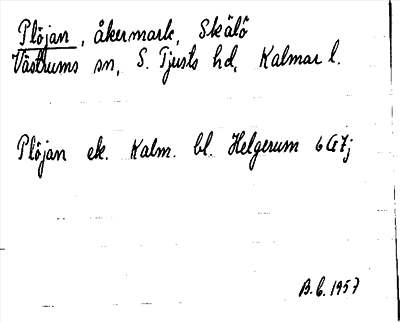 Plöjan, åkermark, Skälö
Västrums sn, S. Tjusts hd, Kalmar l.
Plöjan ek. Kalm. bl. Helgerum 6G7j
B.C. 1957